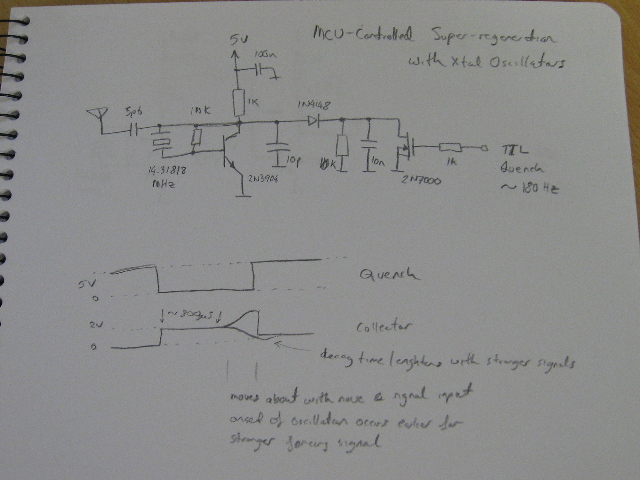 MCU-Controlled Super-regeneration
with Xtal Oscillators
5V
100n
5p6
1K
1N4148
14.31818
MHz
2N3904
10p
10n
2N7000
1K
TTL
Quench
~180Hz
5V
0
Quench
~300µs
2V
0
Collector
decay time lenghtens with stronger signals
moves about with noise & signal input
onset of oscillation occurs earlier for
stronger forcing signal